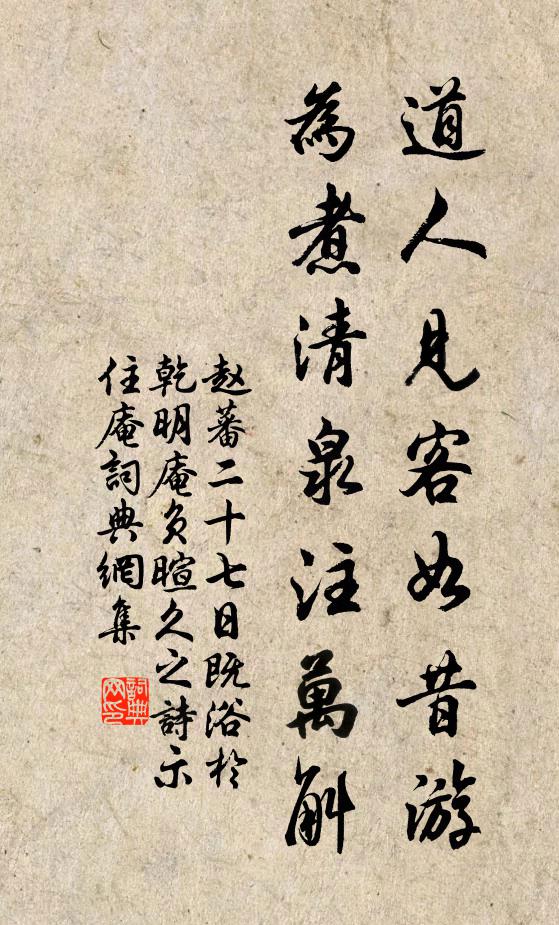 道人見客如昔游
為煮清泉注萬斛
赵蕃二十七日既浴於
乾明庵负暄久之詩示
住庵詞典網集
詞典网印